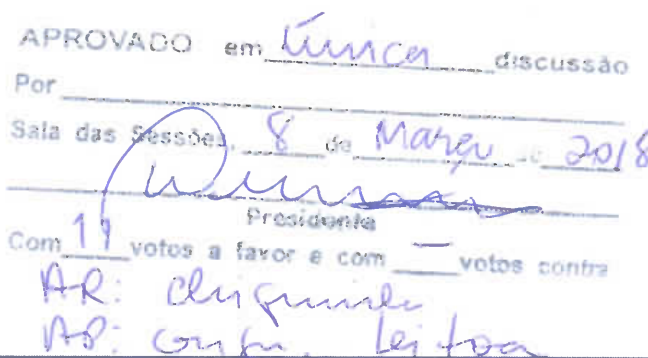 APROVADO em Única discussão
Por
Sala das Sessões, 8 de Março de 2018
Presidente
Com 11 votos a favor e com — votos contra
AR:
AP: Leitoa